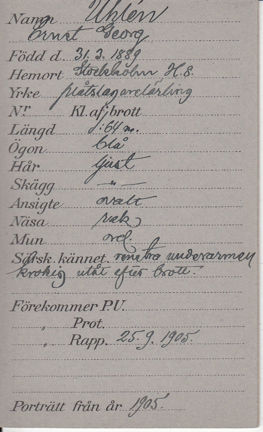 Namn Uhlén
Ernst Georg
Född d. 31.3.1889
Hemort Stockholm H.E.
Yrke plåtslagarelärling
Nr Kl. af brott
Längd 1.64 m.
Ögon blå
Hår ljust
Skägg —„—
Ansigte ovalt
Näsa rak
Mun ord.
Särsk. kännet. venstra underarmen
krokig utåt efter brott.
Förekommer P.U.
„ Prot.
„ Rapp. 25.9.1905.
Porträtt från år 1905.